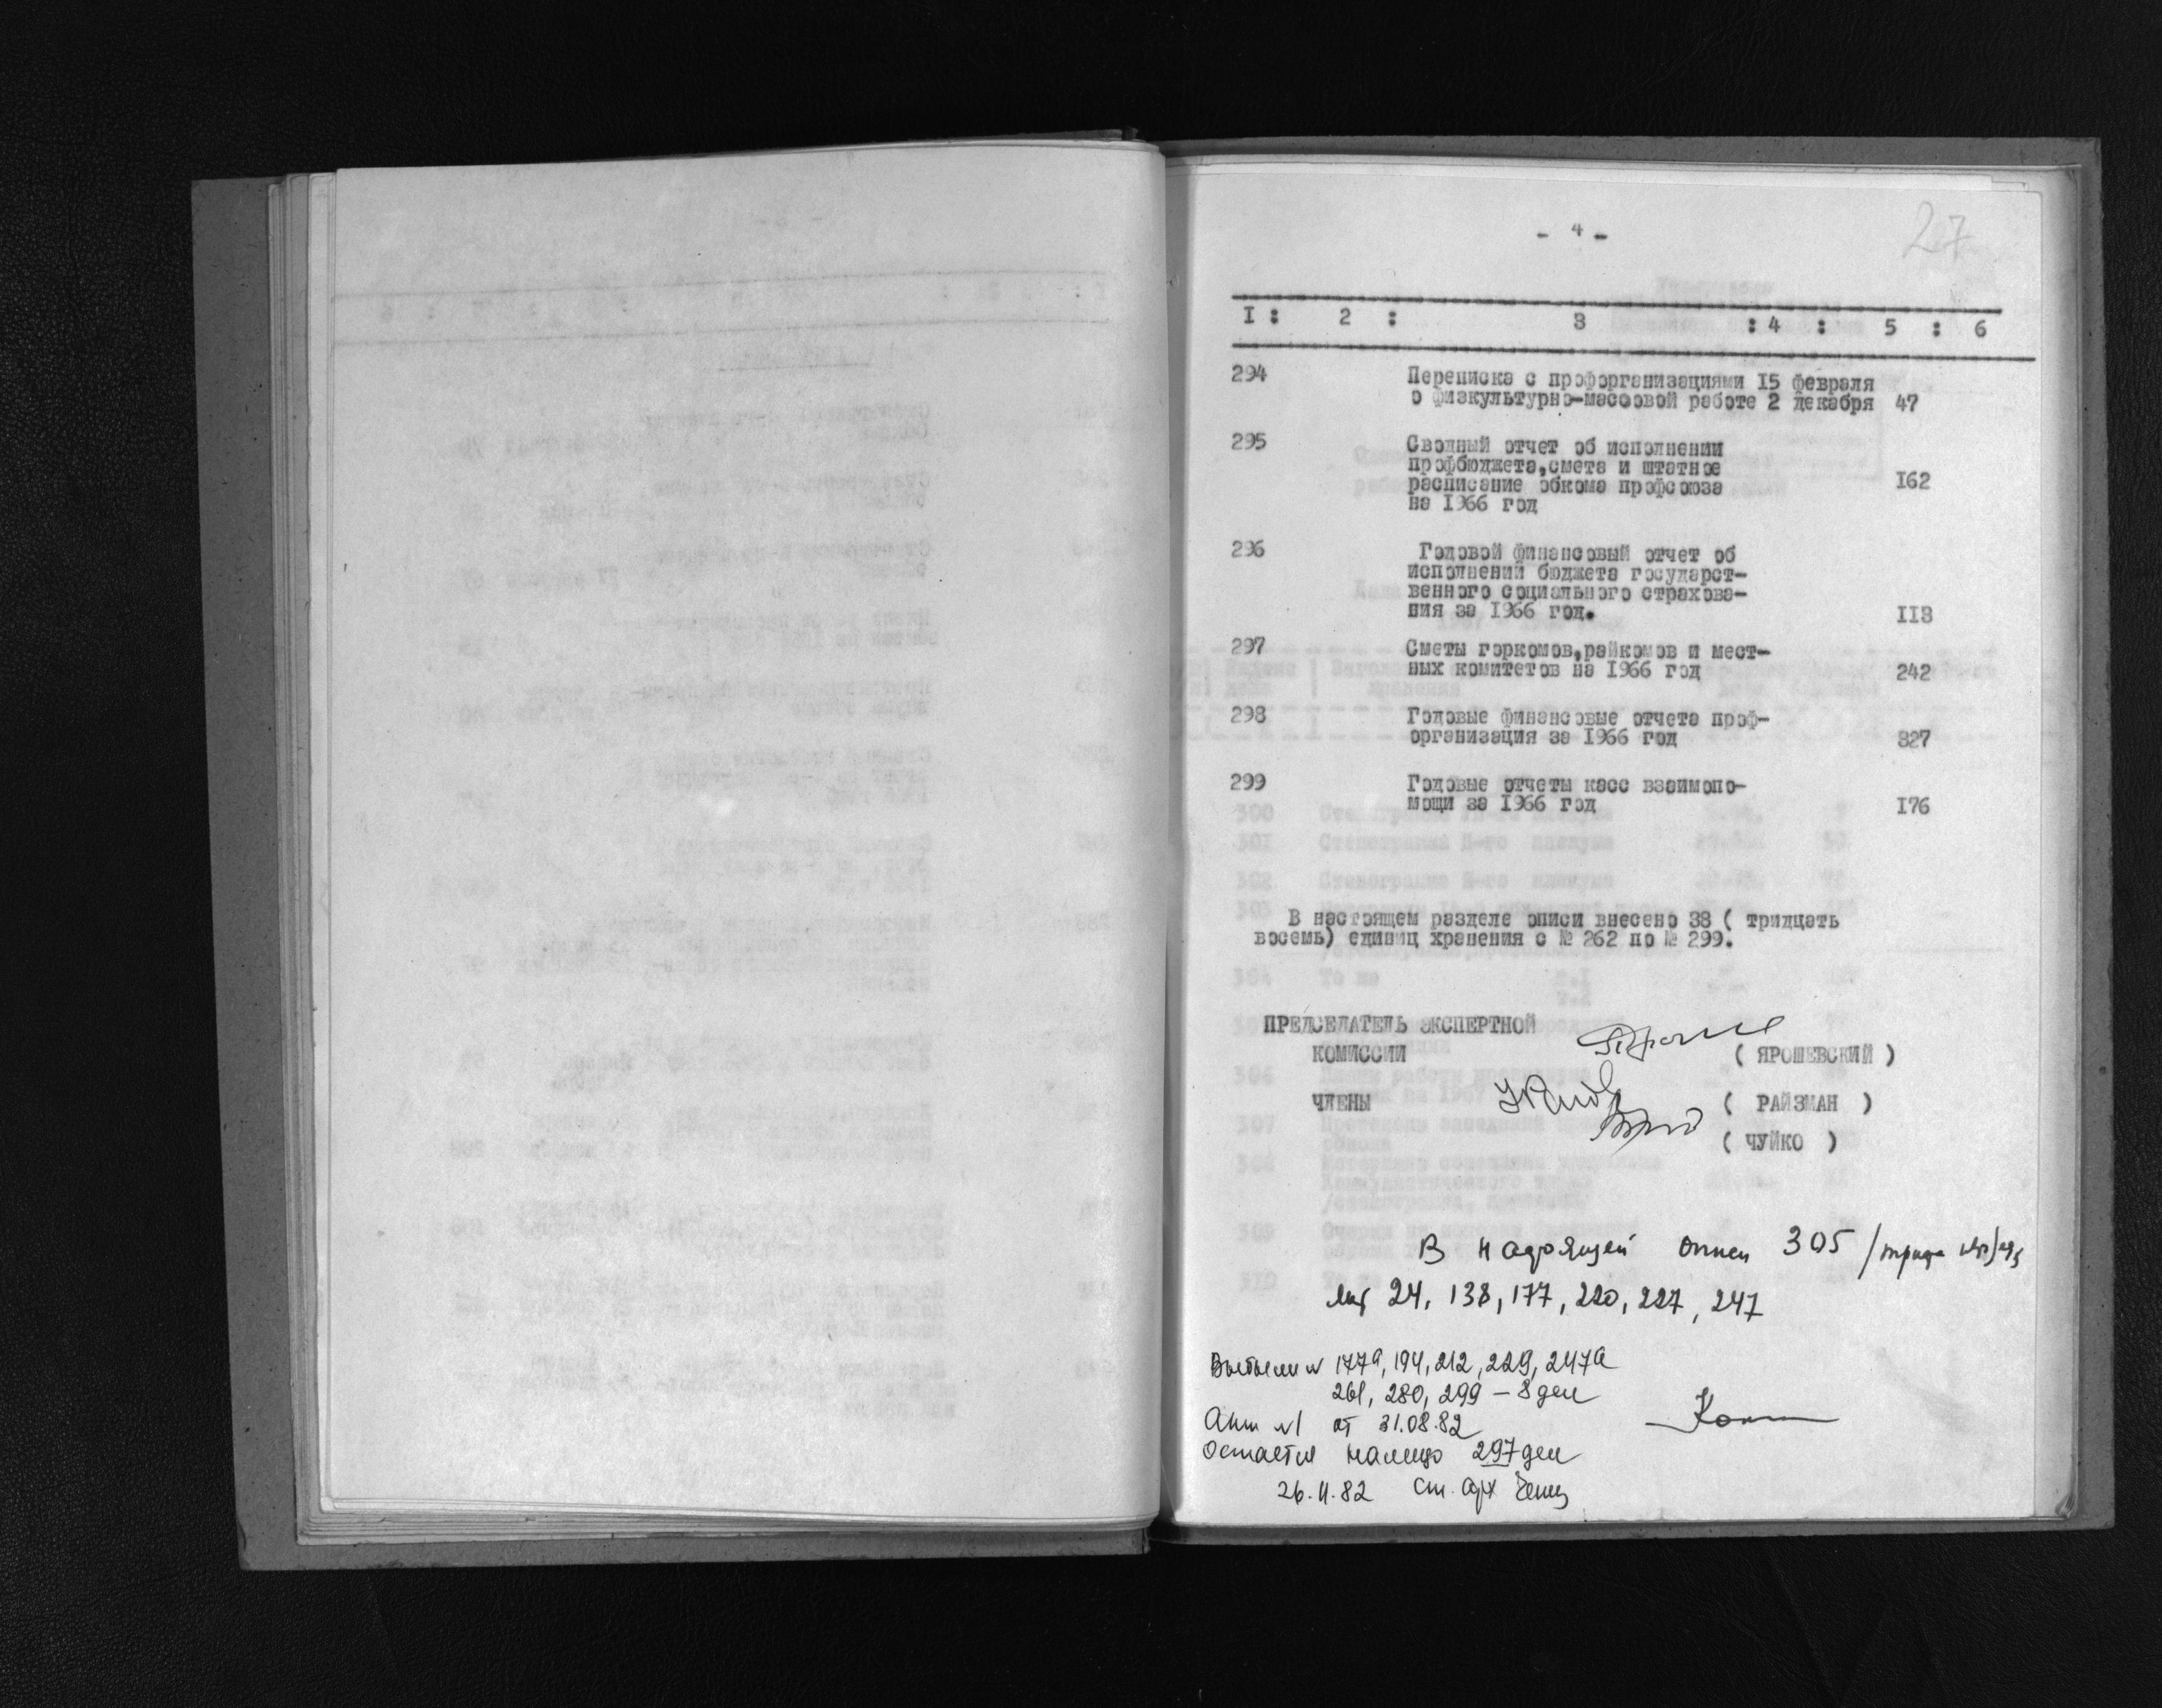 - 4 -
27
I : 2 : 3 : 4 : 5 : 6
294 Переписка с профорганизациями 15 февраля
о физкультурно-массовой работе 2 декабря 47
295 Сводный отчет об исполнении
профбюджета, смета и штатное
расписание обкома профсоюза I62
на I966 год
296 Годовой финансовый отчет об
исполнений бюджета государст-
венного социального страхова-
ния за I966 год. II3
297 Сметы горкомов, райкомов и мест-
ных комитетов на I966 год 242
298 Годовые финансовые отчета проф-
организация за I966 год 327
299 Годовые отчеты касс взаимопо-
мощи за I966 год I76
В настоящем разделе описи внесено 38 ( тридцать
восемь) единиц хранения с № 262 по № 299.
ПРЕДСЕДАТЕЛЬ ЭКСПЕРТНОЙ
КОМИССИИ ( ЯРОШЕВСКИЙ )
ЧЛЕНЫ ( РАЙЗМАН )
( ЧУЙКО )
В настоящей описи 305
лит 24, 138, 177, 220, 227, 247
Выбыли № 177а, 194, 212, 229, 247а
261, 280, 299 – 8 дел
Акт №1 от 31.08.82
Остается налицо 297 дел
26.11.82 Ст. арх